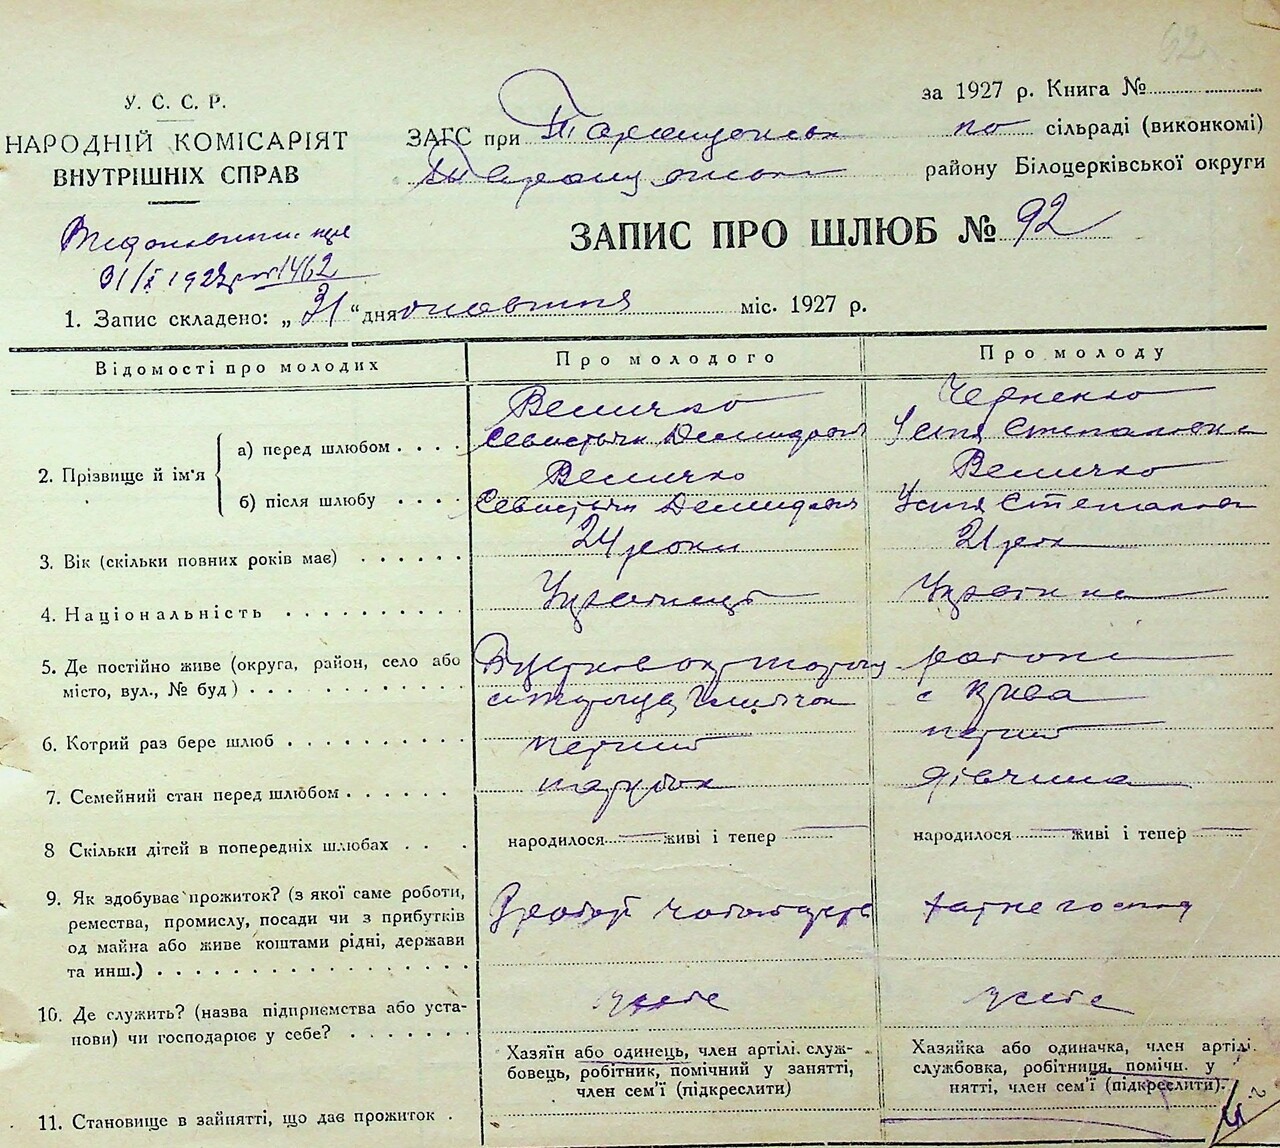 62
У. С. С. Р.
НАРОДНІЙ КОМІСАРІЯТ
ВНУТРІШНІХ СПРАВ
за 1927 р. Книга №
ЗАГС при Таращанськ по сільраді (виконкомі)
району Білоцерківської округи
31/X 1927 р № 1462
ЗАПИС ПРО ШЛЮБ № 92
1. Запис складено: „ 31 “ дня жовтня міс. 1927 р.
Відомості про молодих
Про молодого
Про молоду
2. Прізвище й ім'я
а) перед шлюбом
Величко
Севастьян Демидович
Черненко
Устя Степановна
б) після шлюбу
Величко
Севастьян Демидович
Величко
Устя Степановна
3. Вік (скільки повних років має)
24 роки
21 рок
4. Національність
Українець
Українка
5. Де постійно живе (округа, район, село або
місто, вул., № буд)
району
с Крива
6. Котрий раз бере шлюб
перший
перший
7. Семейний стан перед шлюбом
парубок
дівчина
8 Скільки дітей в попередніх шлюбах
народилося — живі і тепер —
народилося — живі і тепер —
9. Як здобуває прожиток? (з якої саме роботи,
ремества, промислу, посади чи з прибутків
од майна або живе коштами рідні, держави
та инш.)
хатне господ
10. Де служить? (назва підприємства або уста-
нови) чи господарює у себе?
у себе
у себе
11. Становище в зайнятті, що дає прожиток
Хазяїн або одинець, член артілі. служ-
бовець, робітник, помічний у занятті,
член сем'ї (підкреслити)
Хазяйка або одиначка, член артілі.
службовка, робітниця, помічн. у
нятті, член сем'ї (підкреслити).